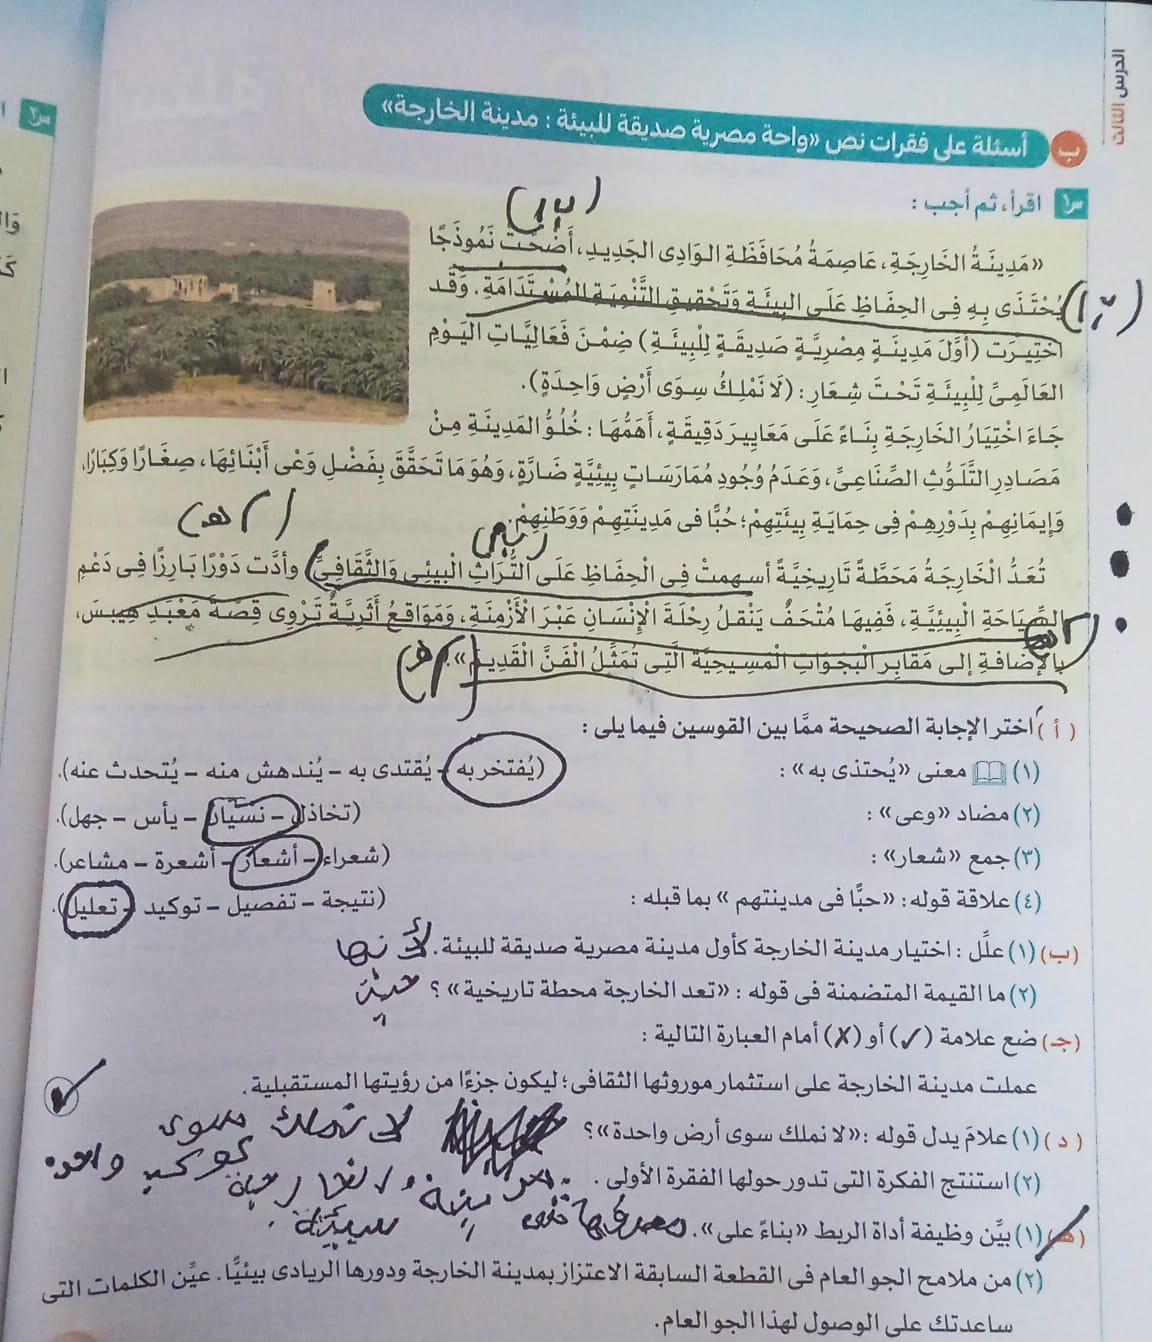 الدرس الثالث
ب أسئلة على فقرات نص «واحة مصرية صديقة للبيئة : مدينة الخارجة»
س١ اقرأ، ثم أجب :
«مَدِينَةُ الخَارِجَةِ، عَاصِمَةُ مُحَافَظَةِ الوَادِى الجَدِيدِ، أَضْحَتْ نَمُوذَجًا
يُحْتَذَى بِهِ فِى الحِفَاظِ عَلَى البِيئَةِ وَتَحْقِيقِ التَّنْمِيَةِ المُسْتَدَامَةِ. وَقَد
اخْتِيرَت (أَوَّلَ مَدِينَةٍ مِصْرِيَّةٍ صَدِيقَةٍ لِلْبِيئَةِ) ضِمْنَ فَعَالِيَّاتِ اليَوْمِ
العَالَمِىِّ لِلْبِيئَةِ تَحْتَ شِعَارِ: (لَا نَمْلِكُ سِوَى أَرْضٍ وَاحِدَةٍ).
جَاءَ اخْتِيَارُ الخَارِجَةِ بِنَاءً عَلَى مَعَايِيرَ دَقِيقَةٍ، أَهَمُّهَا: خُلُوُّ المَدِينَةِ مِنْ
مَصَادِرِ التَّلَوُّثِ الصِّنَاعِىِّ، وَعَدَمُ وُجُودِ مُمَارَسَاتٍ بِيئِيَّةٍ ضَارَّةٍ، وَهُوَ مَا تَحَقَّقَ بِفَضْلِ وَعْى أَبْنَائِهَا، صِغَارًا وَكِبَارًا،
وَإِيمَانِهِمْ بِدَوْرِهِمْ فِى حِمَايَةِ بِيئَتِهِمْ؛ حُبًّا فى مَدِينَتِهِمْ وَوَطَنِهِمْ.
تُعَدُّ الْخَارِجَةُ مَحَطَّةً تَارِيخِيَّةً أسهمتْ فِى الْحِفَاظِ عَلَى التُّرَاثِ الْبيئِى وَالثَّقَافِىِّ، وأدَّت دَوْرًا بَارِزًا فِى دَعْمِ
السِّيَاحَةِ الْبِيئِيَّةِ، فَفِيهَا مُتْحَفٌ يَنْقلُ رِحْلَةَ الْإِنْسَانِ عَبْرَ الْأَزْمِنَةِ، وَمَوَاقِعُ أَثَرِيَّةٌ تَرْوِى قِصَّةَ مَعْبَدِ هِيبسَ،
بالْإضَافةِ إلى مَقَابِرِ الْبَجَوَاتِ الْمَسِيحِيَّةِ الَّتِى تُمَثِّلُ الْفَنَّ الْقَدِيمَ».
(أ) اختر الإجابة الصحيحة ممَّا بين القوسين فيما يلى :
(١) معنى «يُحتذى به» : (يُفتخر به – يُقتدى به – يُندهش منه – يُتحدث عنه).
(٢) مضاد «وعى» : (تخاذل – نسيان – يأس – جهل).
(٣) جمع «شعار» : (شعراء – أشعار – أشعرة – مشاعر).
(٤) علاقة قوله : «حبًّا فى مدينتهم » بما قبله : (نتيجة – تفصيل – توكيد – تعليل).
(ب) (١) علِّل : اختيار مدينة الخارجة كأول مدينة مصرية صديقة للبيئة. لأنها
(٢) ما القيمة المتضمنة فى قوله : «تعد الخارجة محطة تاريخية» ؟
(جـ) ضع علامة (✓) أو (✗) أمام العبارة التالية :
عملت مدينة الخارجة على استثمار موروثها الثقافى؛ ليكون جزءًا من رؤيتها المستقبلية. ✓
(د) (١) علامَ يدل قوله : «لا نملك سوى أرض واحدة»؟ لا نملك سوى
(٢) استنتج الفكرة التى تدور حولها الفقرة الأولى .
(هـ) (١) بيِّن وظيفة أداة الربط «بناءً على».
(٢) من ملامح الجو العام فى القطعة السابقة الاعتزاز بمدينة الخارجة ودورها الريادى بيئيًّا. عيِّن الكلمات التى
ساعدتك على الوصول لهذا الجو العام.
س٢